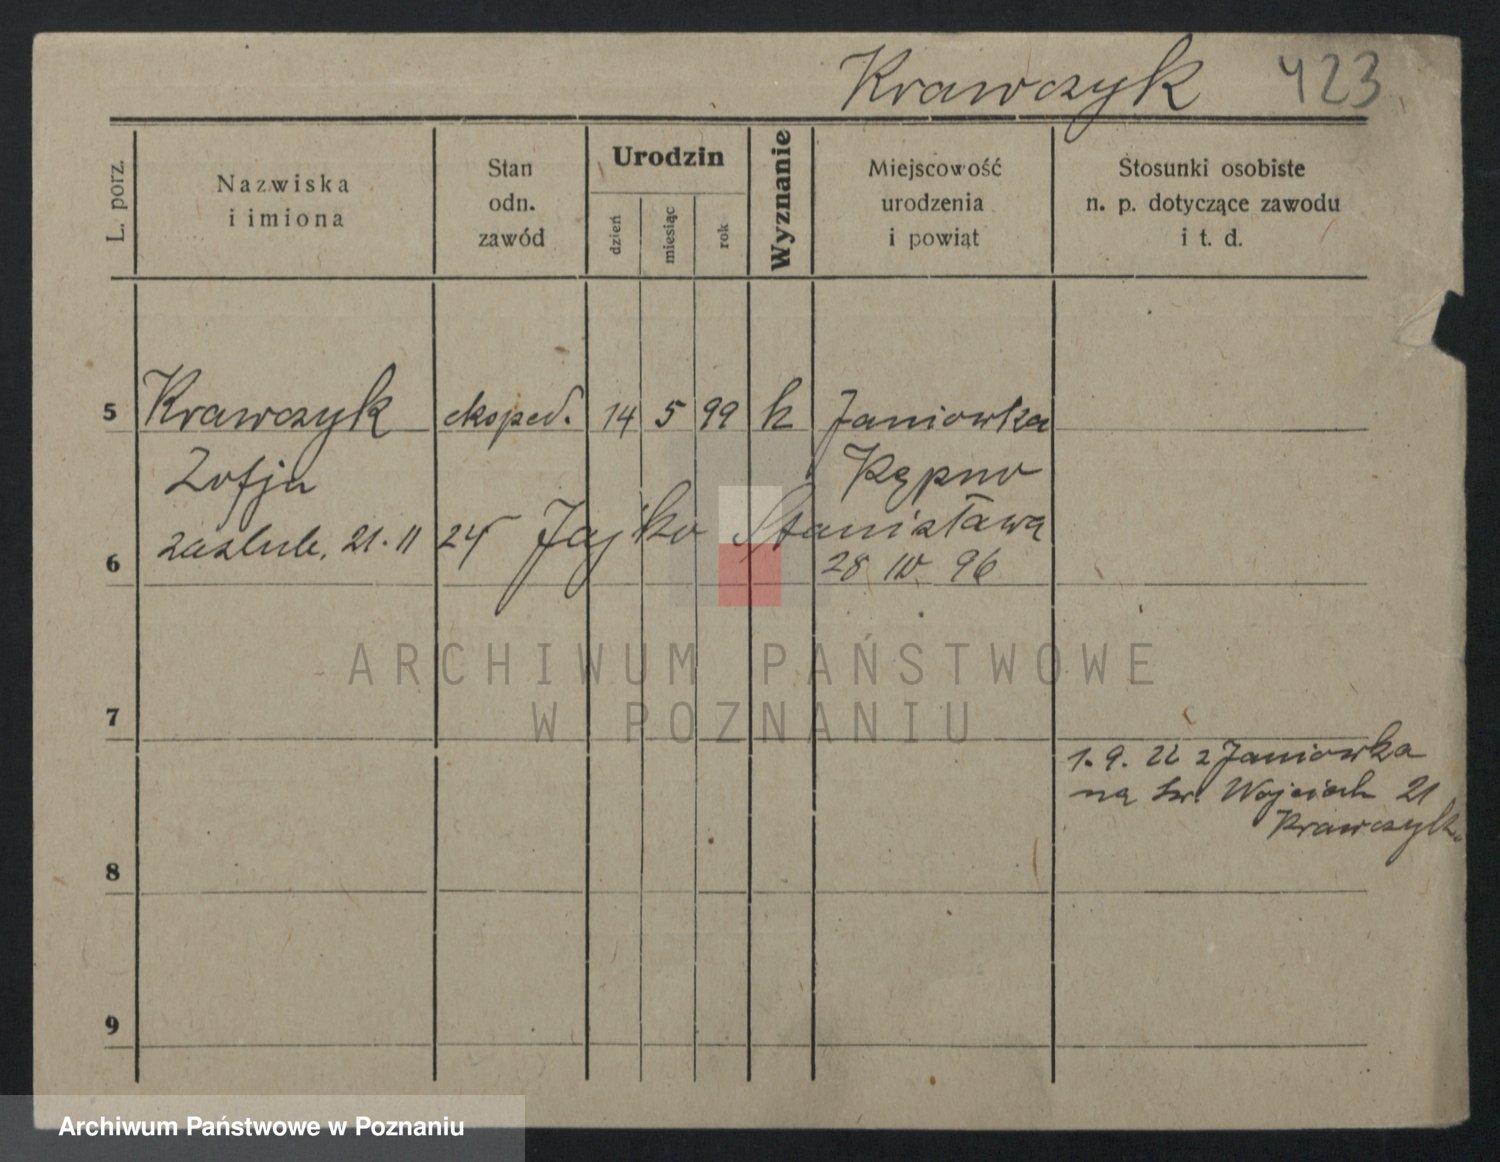 Krawczyk 423
L. porz.
Nazwiska
i imiona
Stan
odn.
zawód
Urodzin
dzień
miesiąc
rok
Wyznanie
Miejscowość
urodzenia
i powiąt
Stosunki osobiste
n. p. dotyczące zawodu
i t. d.
5 Krawczyk eksped. 14 5 99 k Janiowka
Zofja Kępno
zaslub. 21. 11 24 Jajko Stanisława
6 28 IV 96
7
1. 9. 22 z Janiowka
na Św. Wojciech 21
Krawczyk.
8
9
ARCHIWUM PAŃSTWOWE
W POZNANIU
Archiwum Państwowe w Poznaniu